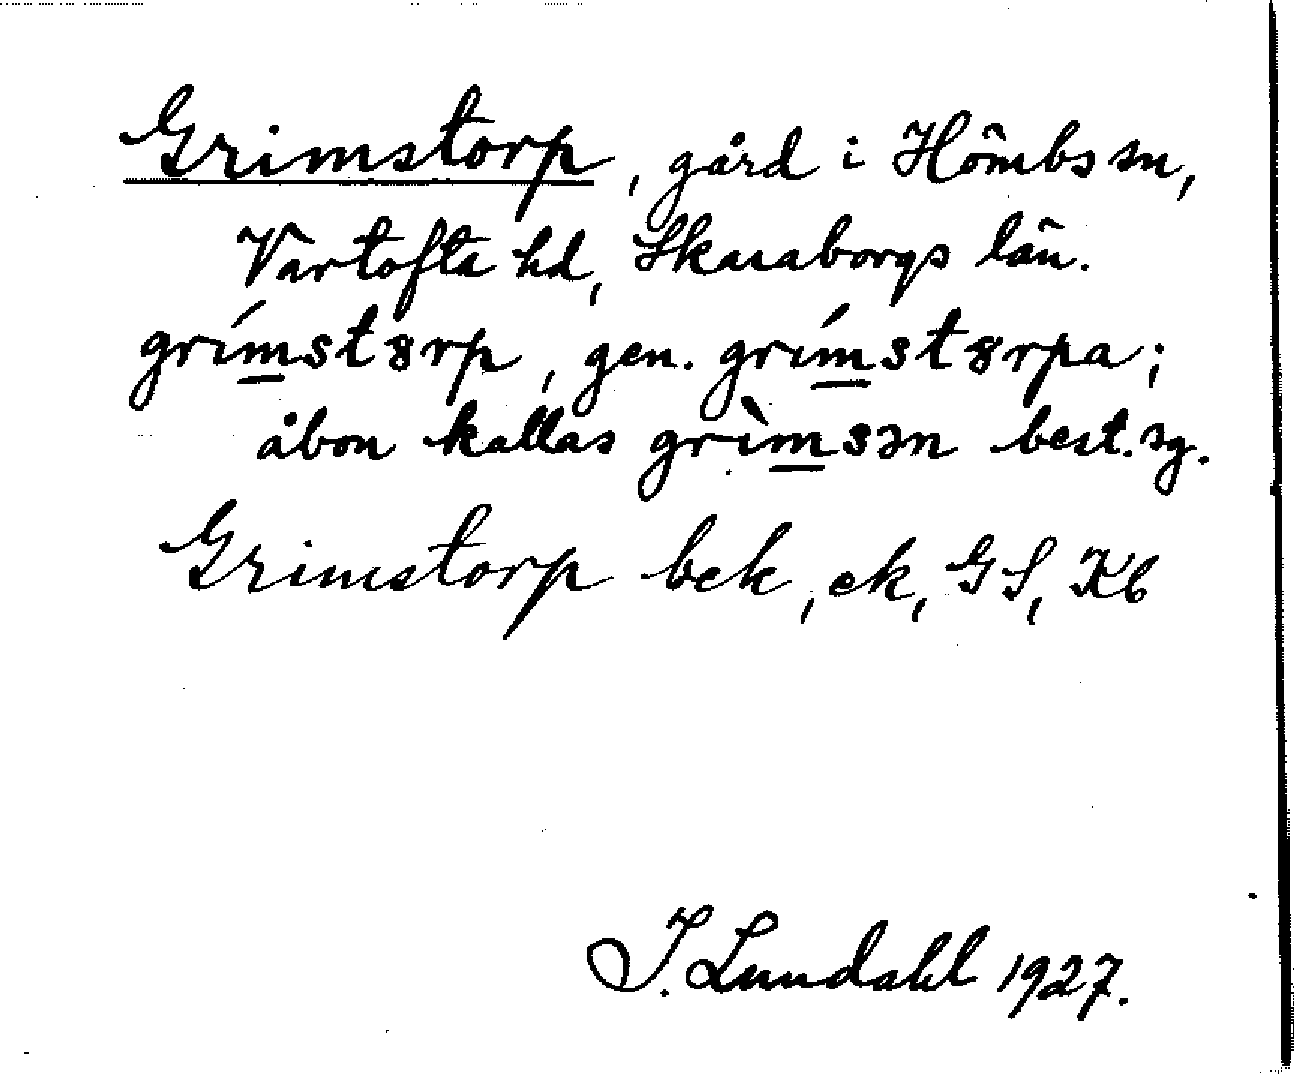 Grimstorp, gård i Hömbs sn,
Vartofta hd, Skaraborgs län.
grímstȣrp, gen. grímstȣrpa;
åbon kallas grìmsən best. sg.
Grimstorp bek, ek, GS, Kb
I. Lundahl 1927.